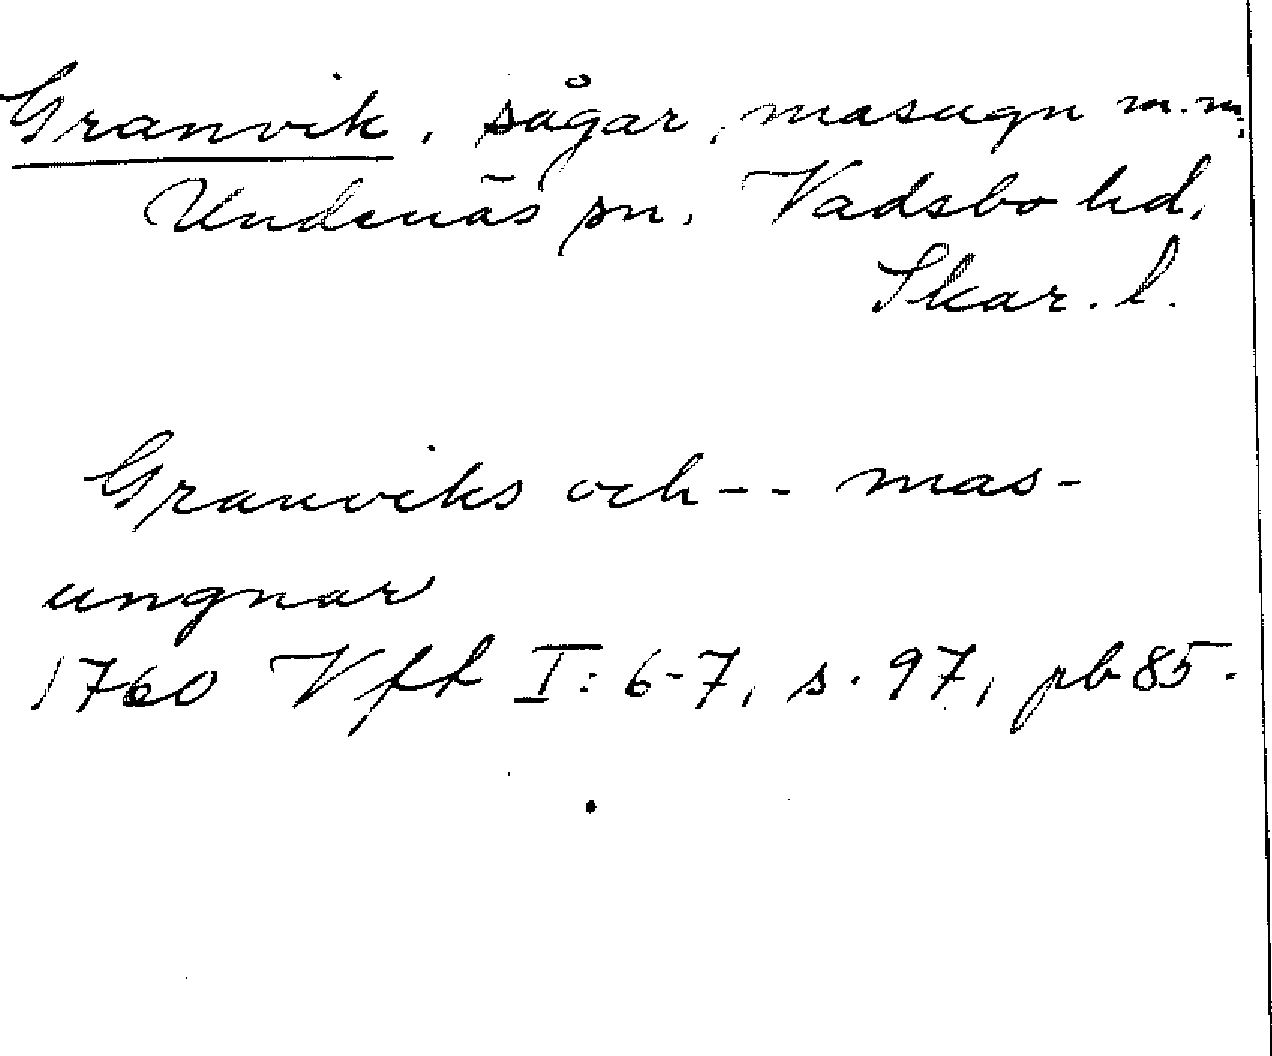 Granvik, sågar, masugn m.m.
Undenäs sn. Vadsbo hd.
Skar. l.
Granviks och -- mas-
ungnar
1760 Vft I: 6-7, s. 97, pb 85.